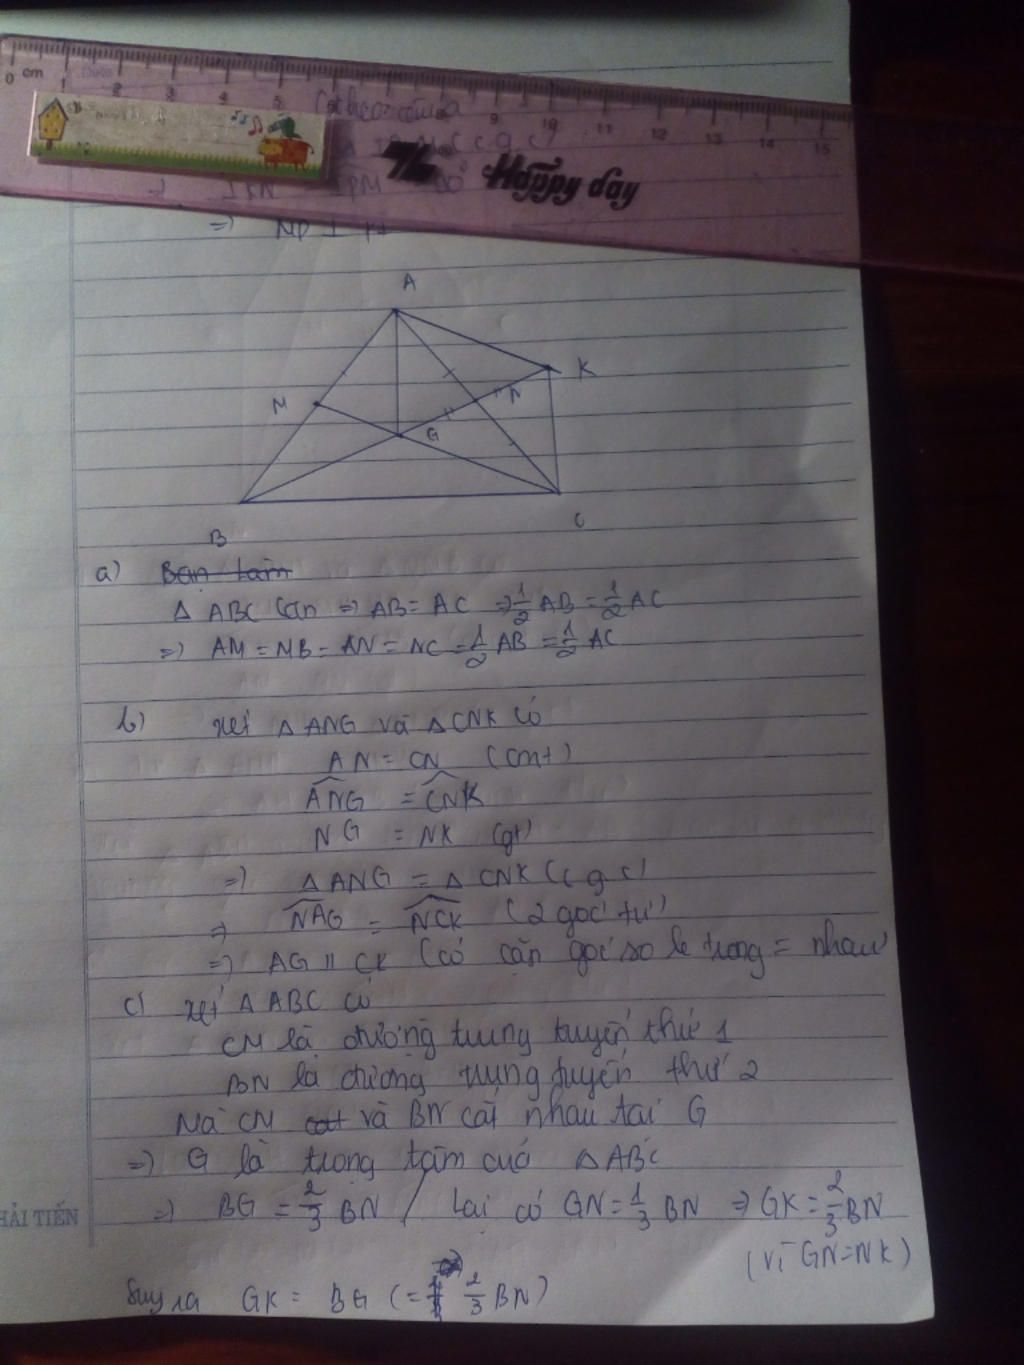 0 cm 1 2 3 4 5 9 10 11 12 13 14 15
(c g c)
Happy day
=)
A
K
M
N
G
B
C
a) Ban tam
Δ ABC cân => AB = AC => 1/2 AB = 1/2 AC
=> AM = MB = AN = NC = 1/2 AB = 1/2 AC
b) xét Δ ANG và Δ CNK có
AN = CN (cmt)
ANG = CNK
NG = NK (gt)
=) Δ ANG = Δ CNK (c g c)
=> NAG = NCK (2 góc tư)
=) AG // CK (có cặp góc so le trong = nhau
c) xét Δ ABC có
CM là đường trung tuyến thứ 1
BN là đường trung tuyến thứ 2
Mà CM cat và BN cắt nhau tại G
=) G là trong tâm của Δ ABC
=) BG = 2/3 BN / Lại có GN = 1/3 BN => GK = 2/3 BN
HẢI TIẾN
(vì GN = NK)
Suy ra GK = BG (= 2/3 BN)